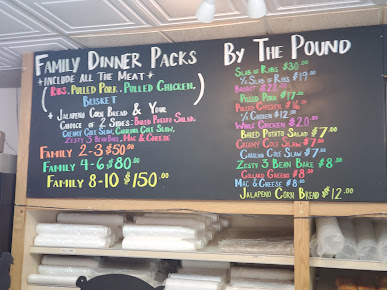 Family Dinner Packs
+ Include All The Meat +
(Ribs. Pulled Pork. Pulled Chicken.
Brisket)
+ Jalapeno Corn Bread & Your
Choice of 2 Sides: Baked Potato Salad,
Creamy Cole Slaw, Carolina Cole Slaw,
Zesty 3 Bean Bake, Mac & Cheese
Family 2-3 $50.00
Family 4-6 $80.00
Family 8-10 $150.00
By The Pound
Slab of Ribs $30.00
1/2 Slab of Ribs $19.00
Brisket $22.00
Pulled Pork $17.00
Pulled Chicken $16.00
1/2 Chicken $12.00
Whole Chicken $20.00
Baked Potato Salad $7.00
Creamy Cole Slaw $7.00
Carolina Cole Slaw $7.00
Zesty 3 Bean Bake $8.00
Collard Greens $8.00
Mac & Cheese $8.00
Jalapeno Corn Bread $12.00